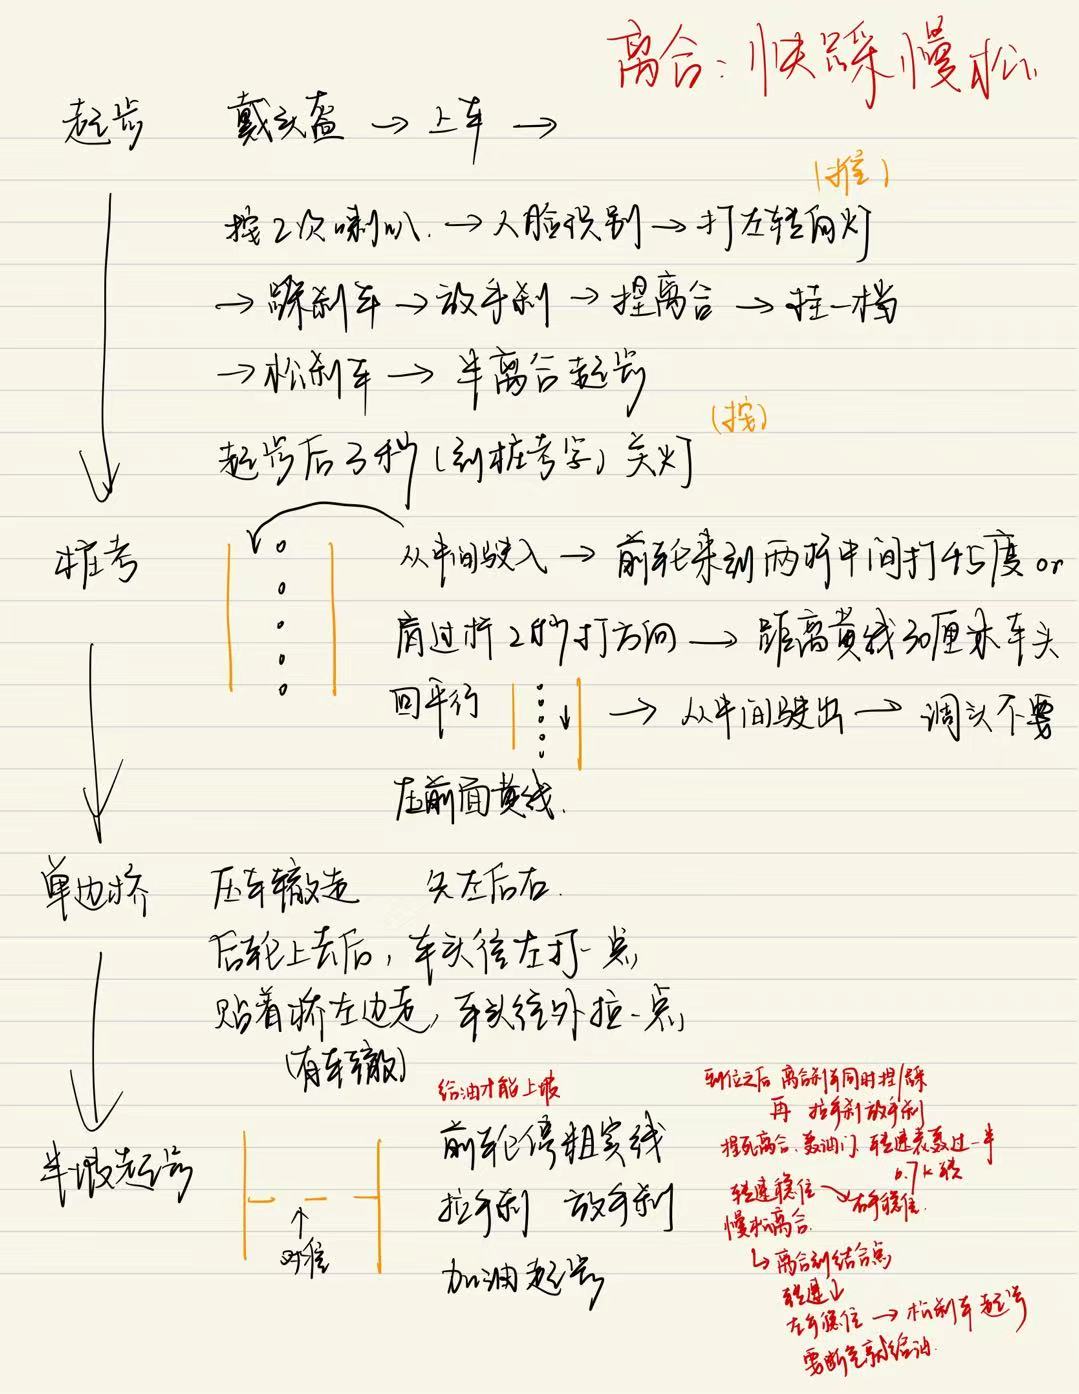 离合：快踩慢松
起步 戴头盔 → 上车 →
（推）
按2次喇叭. → 人脸识别 → 打左转向灯
→ 踩刹车 → 放手刹 → 捏离合 → 挂一档
→ 松刹车 → 半离合起步
（按）
起步后3秒（到桩考字）关灯
桩考 从中间驶入 → 前轮来到两杆中间打45度or
肩过杆2的打方向 → 距离黄线30厘米车头
回平行 → 从中间驶出 → 调头不要
压前面黄线.
单边桥 压车辙走 先左后右.
后轮上去后，车头往左打一点，
贴着桥左边走，车头往外拉一点，
（有车辙）
给油才能上坡
半坡起步 前轮停粗实线
拉手刹 放手刹
加油起步
对准
到位之后 离合刹车同时捏/踩
再 拉手刹放手刹
捏死离合.轰油门.转速表轰过一半
6.7k转
转速稳住 右手稳住.
慢松离合.
↳ 离合到结合点
转速↓
左手稳住 → 松刹车起步
要断气就给油.